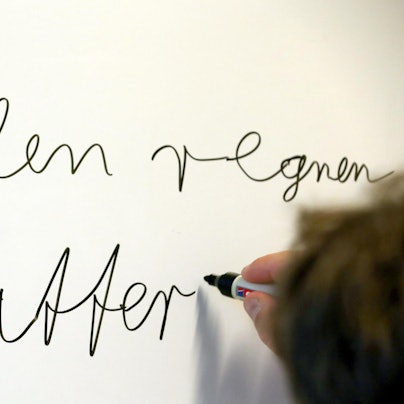 len regnen
atter